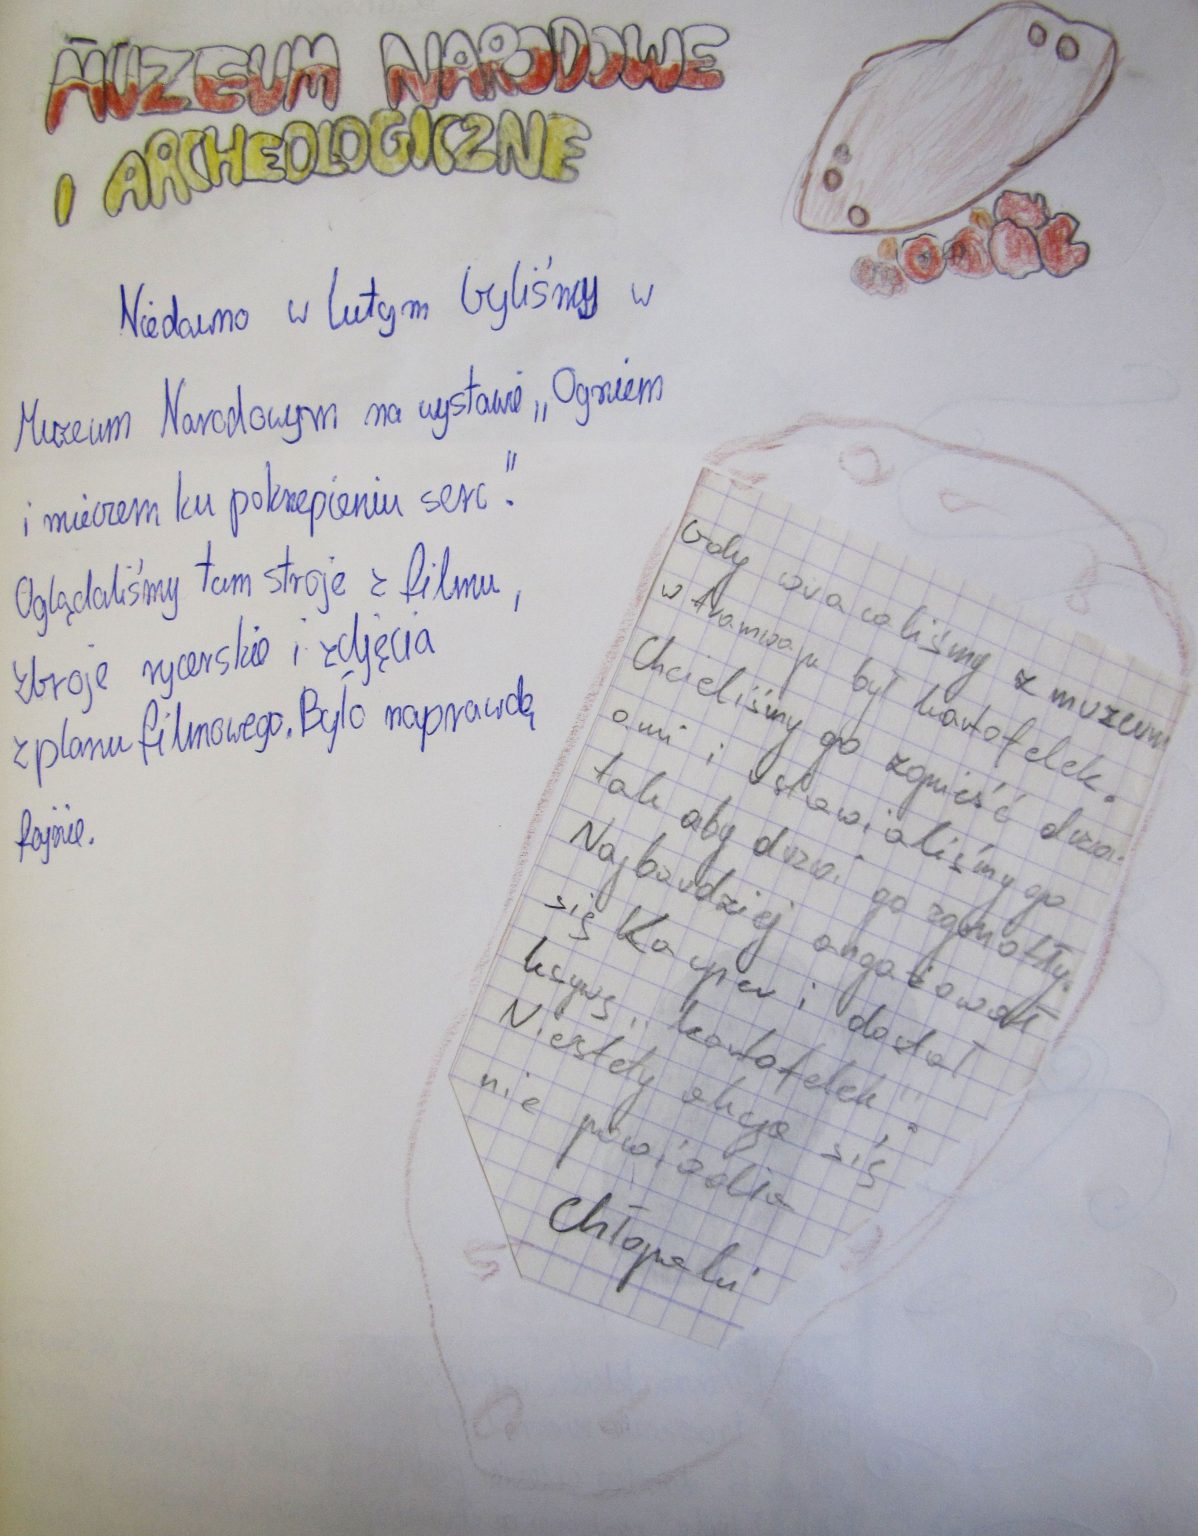 MUZEUM NARODOWE
I ARCHEOLOGICZNE
Niedawno w lutym byliśmy w
Muzeum Narodowym na wystawie „Ogniem
i mieczem ku pokrzepieniu serc".
Oglądaliśmy tam stroje z filmu,
zbroje rycerskie i zdjęcia
z planu filmowego. Było naprawdę
fajnie.
Gdy wracaliśmy z muzeum
w tramwaju był kartofelek.
Chcieliśmy go zgnieść drzwi
ami i ustawialiśmy go
tak aby drzwi go zgniotły.
Najbardziej angażował
się Kacper i dostał
ksywę „kartofelek".
Niestety akcja się
nie powiodła
Chłopaki